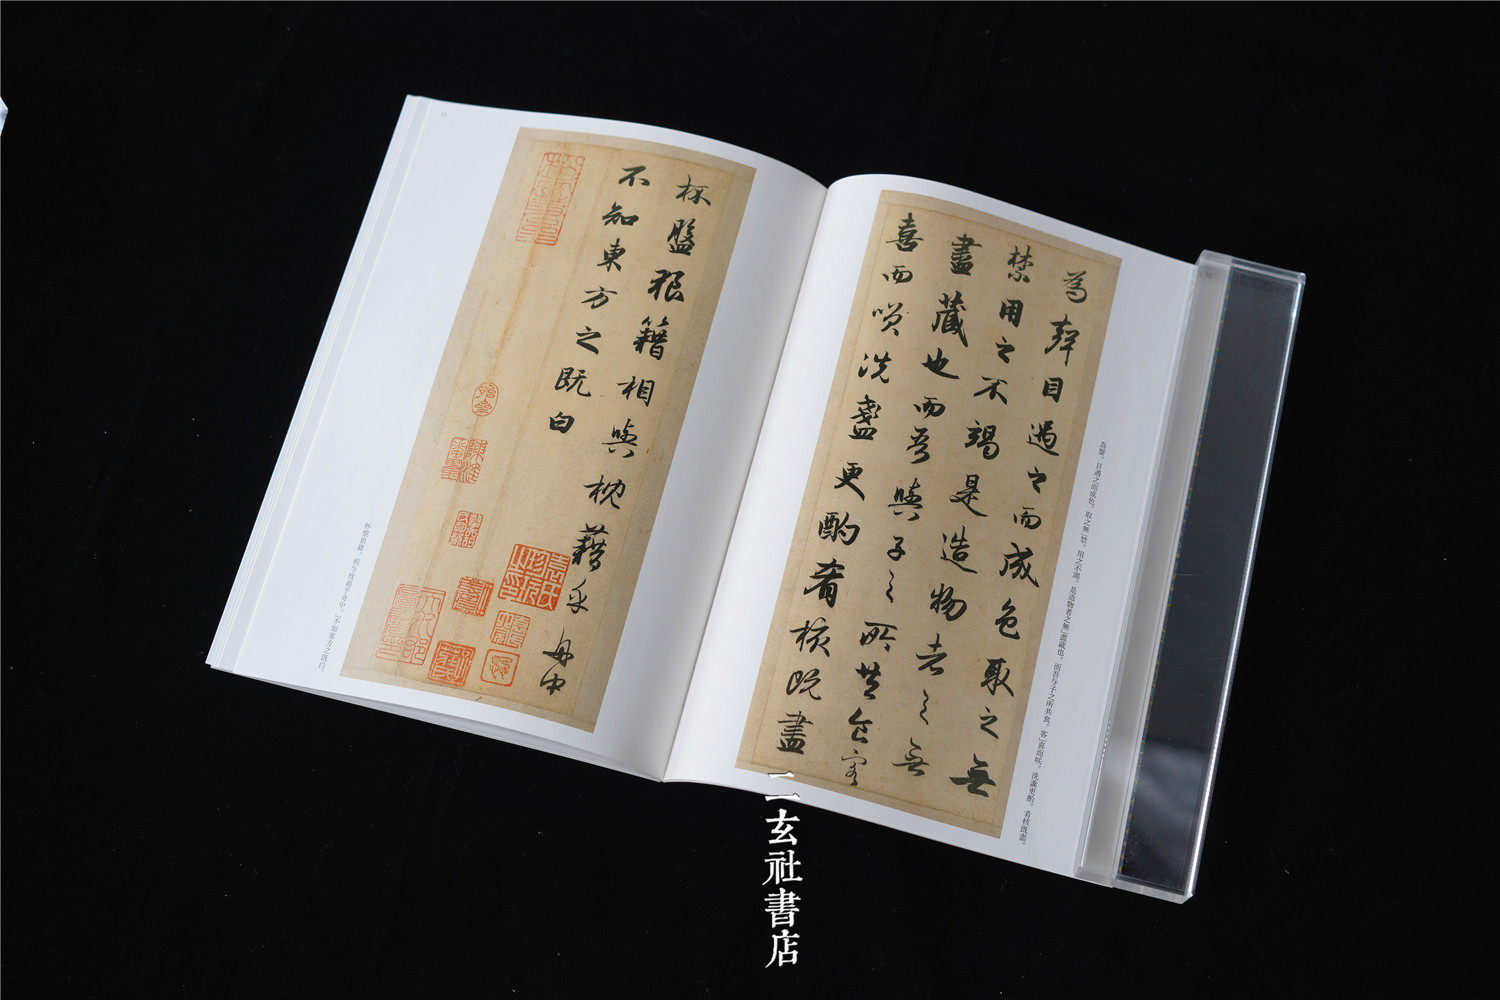 12
為聲目遇之而成色取之無
禁用之不竭是造物者之無
盡藏也而吾與子之所共食客
喜而咲洗盞更酌肴核既盡
為聲。目遇之而成色。取之無」禁。用之不竭。是造物者之無」盡藏也。而吾与子之所共食。客」喜而咲。洗盞更酌。肴核既盡。
杯盤狼籍相與枕藉乎舟中
不知東方之既白
杯盤狼籍。相与枕藉乎舟中。」不知東方之既白
二玄社書店